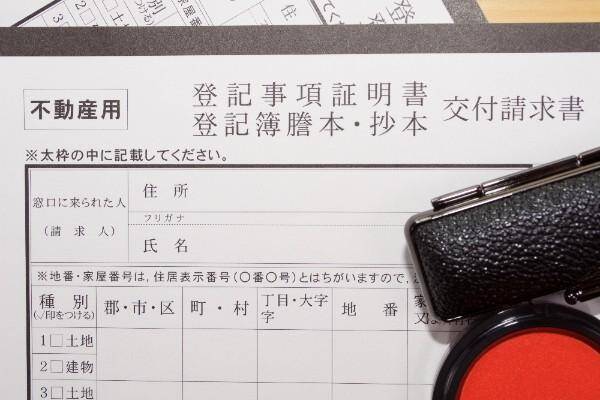 種別
不動産用
登記事項証明書
登記簿謄本・抄本
交付請求書
※太枠の中に記載してください。
窓口に来られた人
(請求人)
住所
フリガナ
氏名
※地番・家屋番号は，住居表示番号(〇番〇号)とはちがいますので，
種別
(√印をつける)
郡・市・区
町・村
丁目・大字
字
地番
家
又
1□土地
2□建物
3□土地